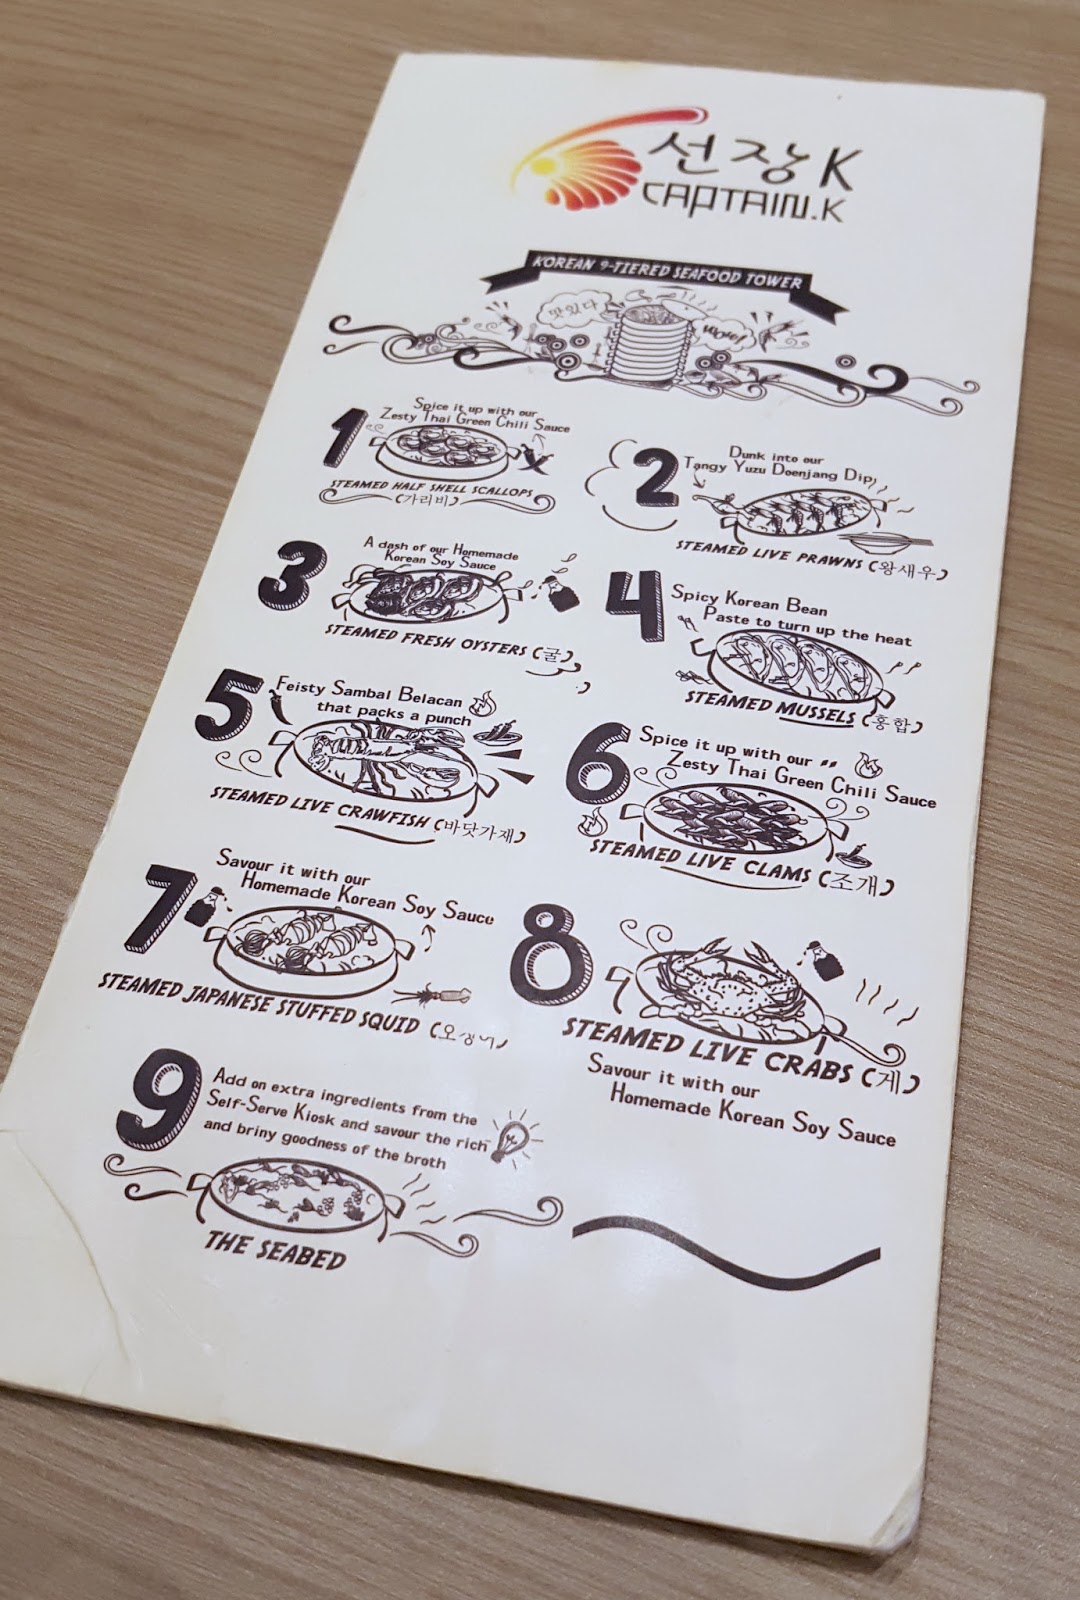 선장K
CAPTAIN.K
KOREAN 9-TIERED SEAFOOD TOWER
맛있다
Wow!
1
Spice it up with our
Zesty Thai Green Chili Sauce
STEAMED HALF SHELL SCALLOPS
(가리비)
2
Dunk into our
Tangy Yuzu Doenjang Dip
STEAMED LIVE PRAWNS (왕새우)
3
A dash of our Homemade
Korean Soy Sauce
STEAMED FRESH OYSTERS (굴)
4
Spicy Korean Bean
Paste to turn up the heat
STEAMED MUSSELS (홍합)
5
Feisty Sambal Belacan
that packs a punch
STEAMED LIVE CRAWFISH (바닷가재)
6
Spice it up with our
Zesty Thai Green Chili Sauce
STEAMED LIVE CLAMS (조개)
7
Savour it with our
Homemade Korean Soy Sauce
STEAMED JAPANESE STUFFED SQUID
8
STEAMED LIVE CRABS (게)
Savour it with our
Homemade Korean Soy Sauce
9
Add on extra ingredients from the
Self-Serve Kiosk and savour the rich
and briny goodness of the broth
THE SEABED